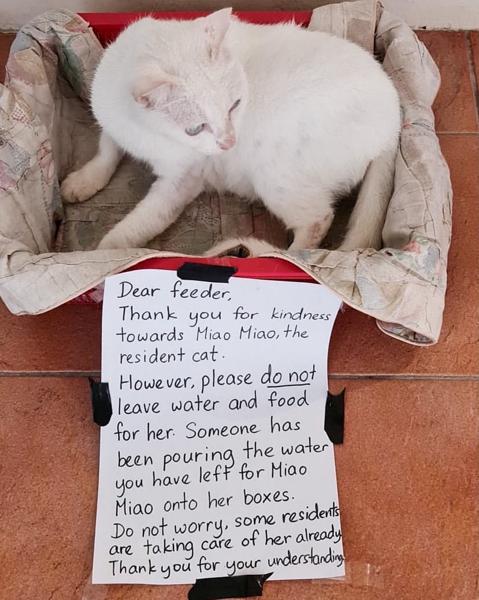 Dear feeder,
Thank you for kindness
towards Miao Miao, the
resident cat.
However, please do not
leave water and food
for her. Someone has
been pouring the water
you have left for Miao
Miao onto her boxes.
Do not worry, some residents
are taking care of her already.
Thank you for your understanding.